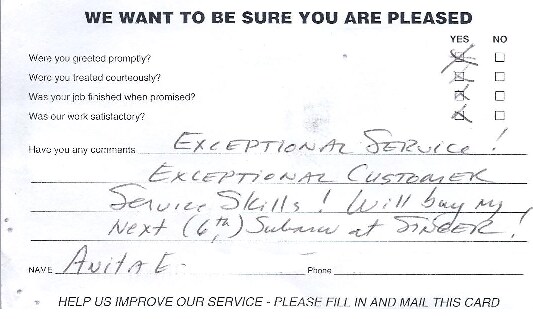 WE WANT TO BE SURE YOU ARE PLEASED
YES NO
Were you greeted promptly?
Were you treated courteously?
Was your job finished when promised?
Was our work satisfactory?
Have you any comments EXCEPTIONAL SERVICE!
EXCEPTIONAL CUSTOMER
SERVICE Skills! Will buy my
Next (6th) Subaru at SINGER!
NAME Anita E. Phone
HELP US IMPROVE OUR SERVICE - PLEASE FILL IN AND MAIL THIS CARD